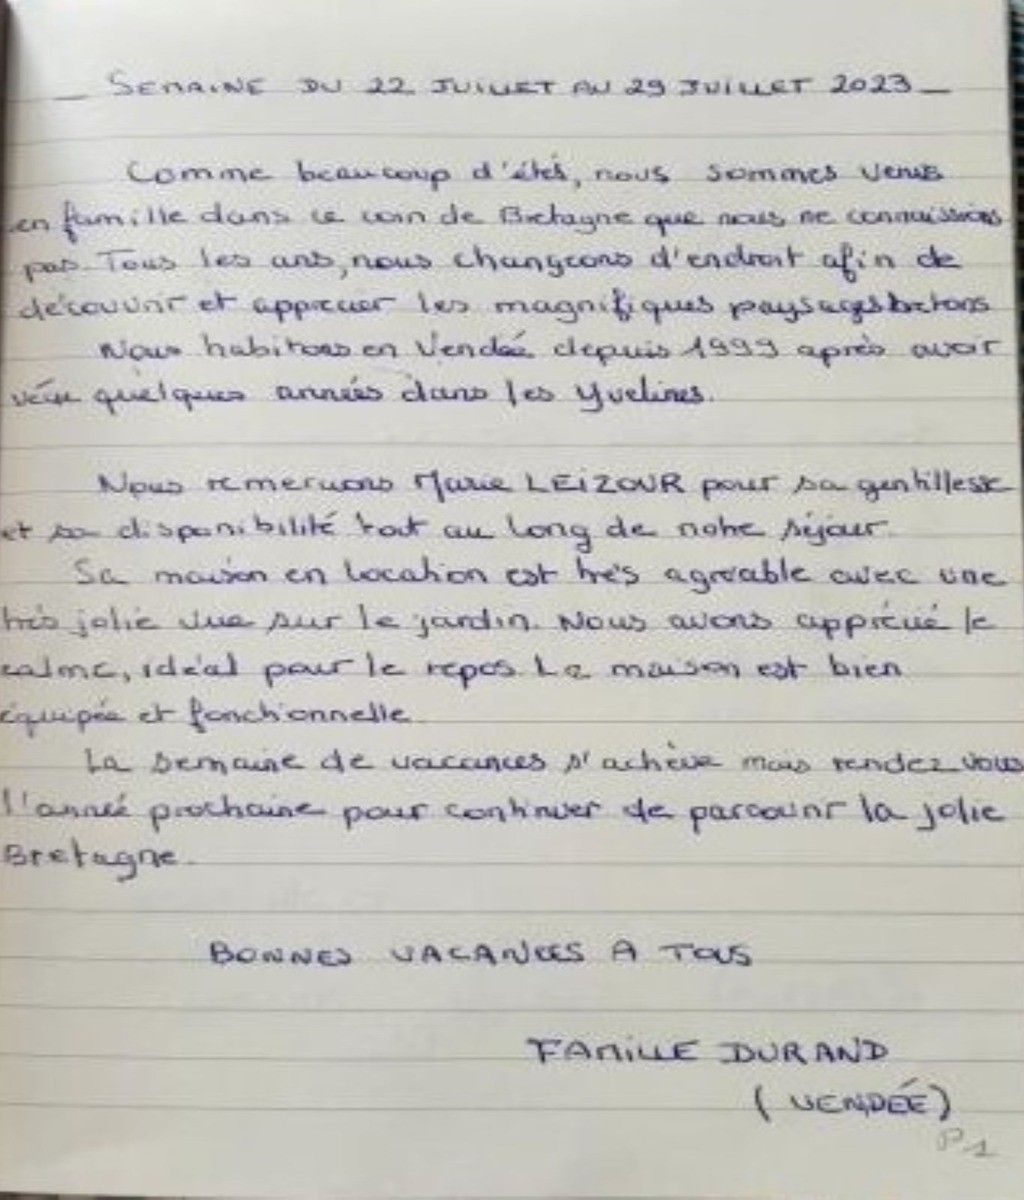 _ SEMAINE DU 22 JUILLET AU 29 JUILLET 2023 _
Comme beaucoup d'étés, nous sommes venus
en famille dans ce coin de Bretagne que nous ne connaissions
pas. Tous les ans, nous changeons d'endroit afin de
découvrir et apprécier les magnifiques paysages bretons
Nous habitons en Vendée depuis 1999 après avoir
vécu quelques années dans les Yvelines.
Nous remercions Marie LEIZOUR pour sa gentillesse
et sa disponibilité tout au long de notre séjour.
Sa maison en location est très agréable avec une
très jolie vue sur le jardin. Nous avons apprécié le
calme, idéal pour le repos. La maison est bien
équipée et fonctionnelle.
La semaine de vacances s'achève mais rendez vous
l'année prochaine pour continuer de parcourir la jolie
Bretagne.
BONNES VACANCES A TOUS
FAMILLE DURAND
(VENDÉE)
P1